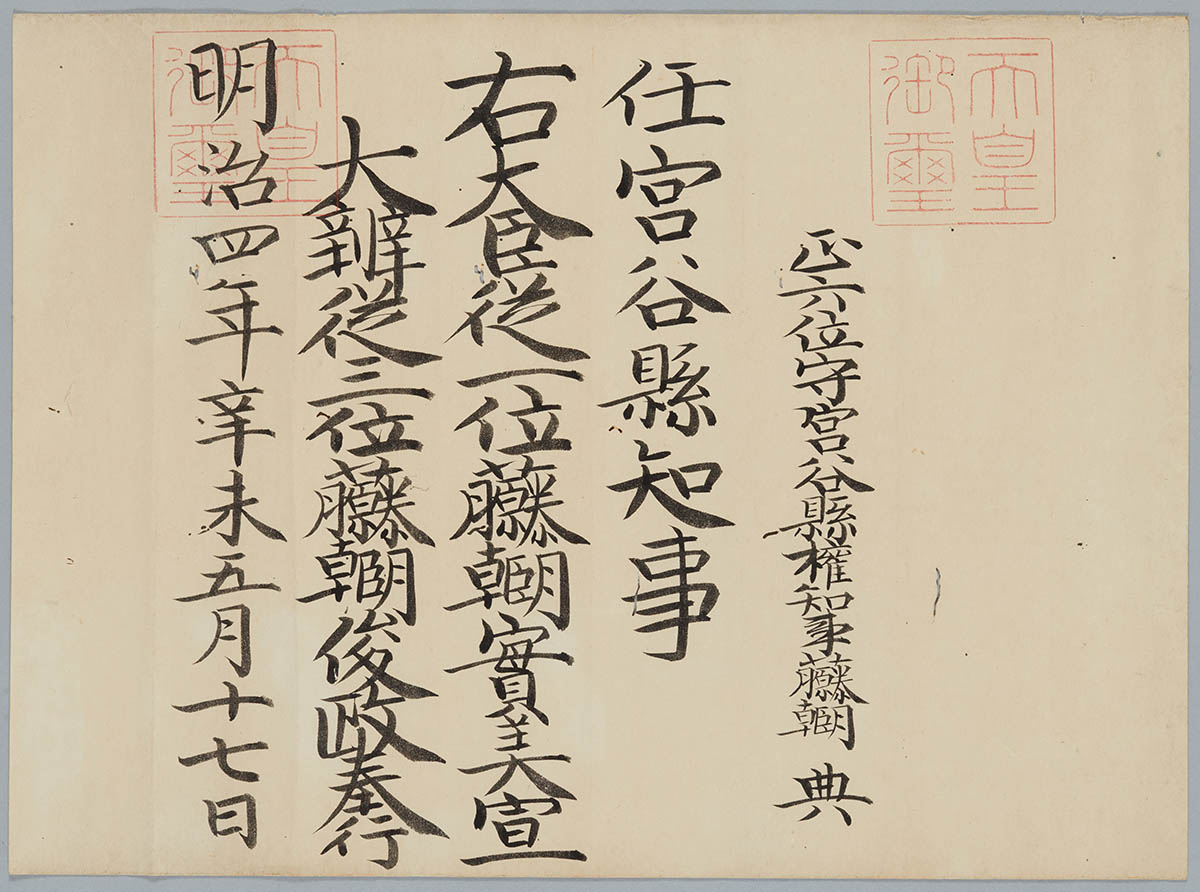 天皇
御璽
正六位守宮谷縣權知事藤原朝臣典
任宮谷縣知事
右大臣從一位藤原朝臣實美宣
大辨從三位藤原朝臣俊政奉行
天皇
御璽
明治四年辛未五月十七日